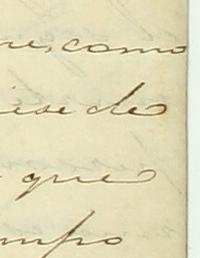 re, como
iese de
que
mpo